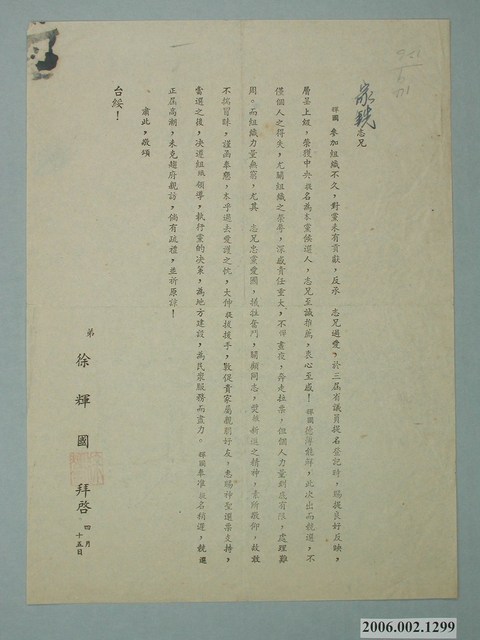 家駿志兄
輝國參加組織不久，對黨未有貢獻，反承　志兄過愛，於三屆省議員提名登記時，賜提良好反映，
層呈上級，榮獲中央提名為本黨候選人，志兄至誠推薦，衷心至感！輝國德薄能鮮，此次出而競選，不
僅個人之得失，尤關組織之榮辱，深感責任重大，不憚晝夜，奔走拉票，但個人力量到底有限，處理難
周。而組織力量無窮，尤其　志兄忠黨愛國，犧牲奮鬥，關顧同志，素所敬仰，故敢
不揣冒昧，謹函奉懇，本乎過去愛護之忱，大伸援手，敦促貴家屬親朋好友，惠賜神聖選票支持，
當選之後，決遵組織領導，執行黨的決策，為地方建設，為民眾服務而盡力。輝國奉准提名稍遲，競選
正屆高潮，未克趨府親訪，倘有疏禮，並祈原諒！
肅此，敬頌
台綏！
弟　徐輝國　拜啓　四月十五日
2006.002.1299